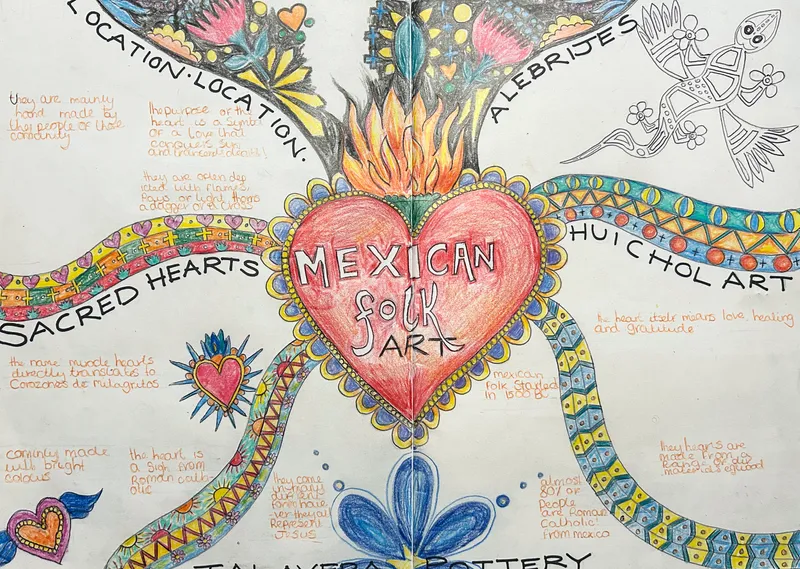 LOCATION·LOCATION.
ALEBRIJES
they are mainly
hand made by
the people of those
comunity
the purpose of the
heart is a symbol
of a love that
conquers sin
and trancends death!
they are often dep
icted with flames,
Rays or light, thorns
HUICHOL ART
SACRED HEARTS
MEXICAN
folk
ART
the heart itself means love, healing
and gratitude
the name muracle hearts
directly translates to
Corazones de Milagritos
mexican
folk started
in 1500 BC
cominly made
with bright
colours
the heart is
a sign from
Roman cath
olic
they come
in many
different
forms how
-ver they all
Represent
JESUS
almost
80% of
People
are Roman
Catholic!
from mexico
they hears are
made from a
range of
materials eg wood
TALAVERA POTTERY